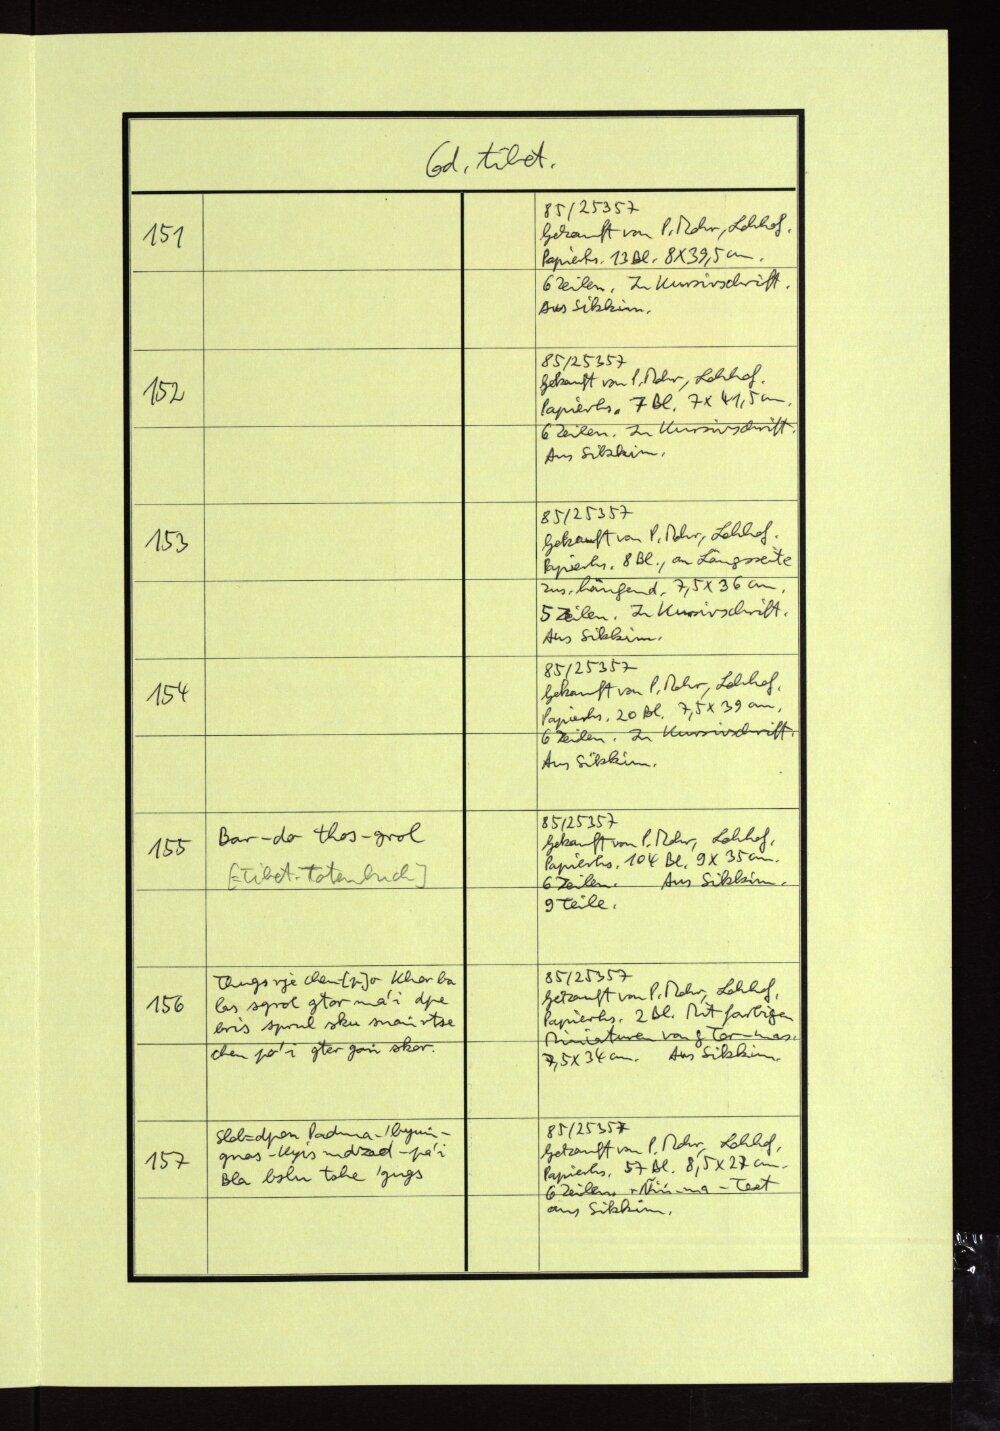 Cod. tibet.
151
85/25357
Gekauft von P. Mohr, Lohhof.
Papierhs. 13 Bl. 8X39,5 cm.
6 Zeilen. In Kursivschrift.
Aus Sikkim.
152
85/25357
Gekauft von P. Mohr, Lohhof.
Papierhs. 7 Bl. 7X41,5 cm.
6 Zeilen. In Kursivschrift.
Aus Sikkim.
153
85/25357
Gekauft von P. Mohr, Lohhof.
Papierhs. 8 Bl., an Längsseite
zus.hängend. 7,5X36 cm.
5 Zeilen. In Kursivschrift.
Aus Sikkim.
154
85/25357
Gekauft von P. Mohr, Lohhof.
Papierhs. 20 Bl. 7,5X39 cm.
6 Zeilen. In Kursivschrift.
Aus Sikkim.
155
Bar-do thos-grol
[=Tibet. Totenbuch]
85/25357
Gekauft von P. Mohr, Lohhof.
Papierhs. 104 Bl. 9X35 cm.
6 Zeilen. Aus Sikkim.
9 Teile.
156
Thugs rje chen[p]o Khor ba
las sgrol gtor ma'i dpe
bris sprul sku rtse
chen pa'i gter skor.
85/25357
Gekauft von P. Mohr, Lohhof.
Papierhs. 2 Bl. Mit farbigen
Miniaturen von Tor-mas.
7,5X34 cm. Aus Sikkim.
157
Slob-dpon Padma-'byuṅ-
gnas-Kyis mdzad-pa'i
Bla bslu tshe 'gugs
85/25357
Gekauft von P. Mohr, Lohhof.
Papierhs. 57 Bl. 8,5X27 cm.
6 Zeilen. rÑiṅ-ma-Text
aus Sikkim.